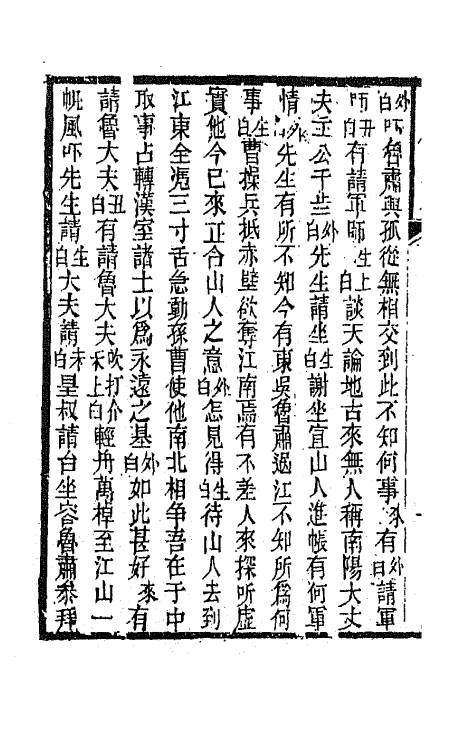 外白吓魯肅與孤從無相交到此不知何事來有外白請軍
師丑白有請軍師生上白談天論地古來無人稱南陽大丈
夫主公千歲外白先生請坐生白謝坐宣山人進帳有何軍
情外白先生有所不知今有東吳魯肅過江不知所爲何
事生白曹操兵抵赤壁欲奪江南焉有不差人來探听虛
實他今已來正合山人之意外白怎見得生白待山人去到
江東全凴三寸舌急動孫曹使他南北相争吾在于中
取事占轉漢室諸士以爲永遠之基外白如此甚好來有
請魯大夫丑白有請魯大夫吹打介末上白輕舟萬棹至江山一
帆風吓先生請生白大夫請末白皇叔請台坐容魯肅叅拜